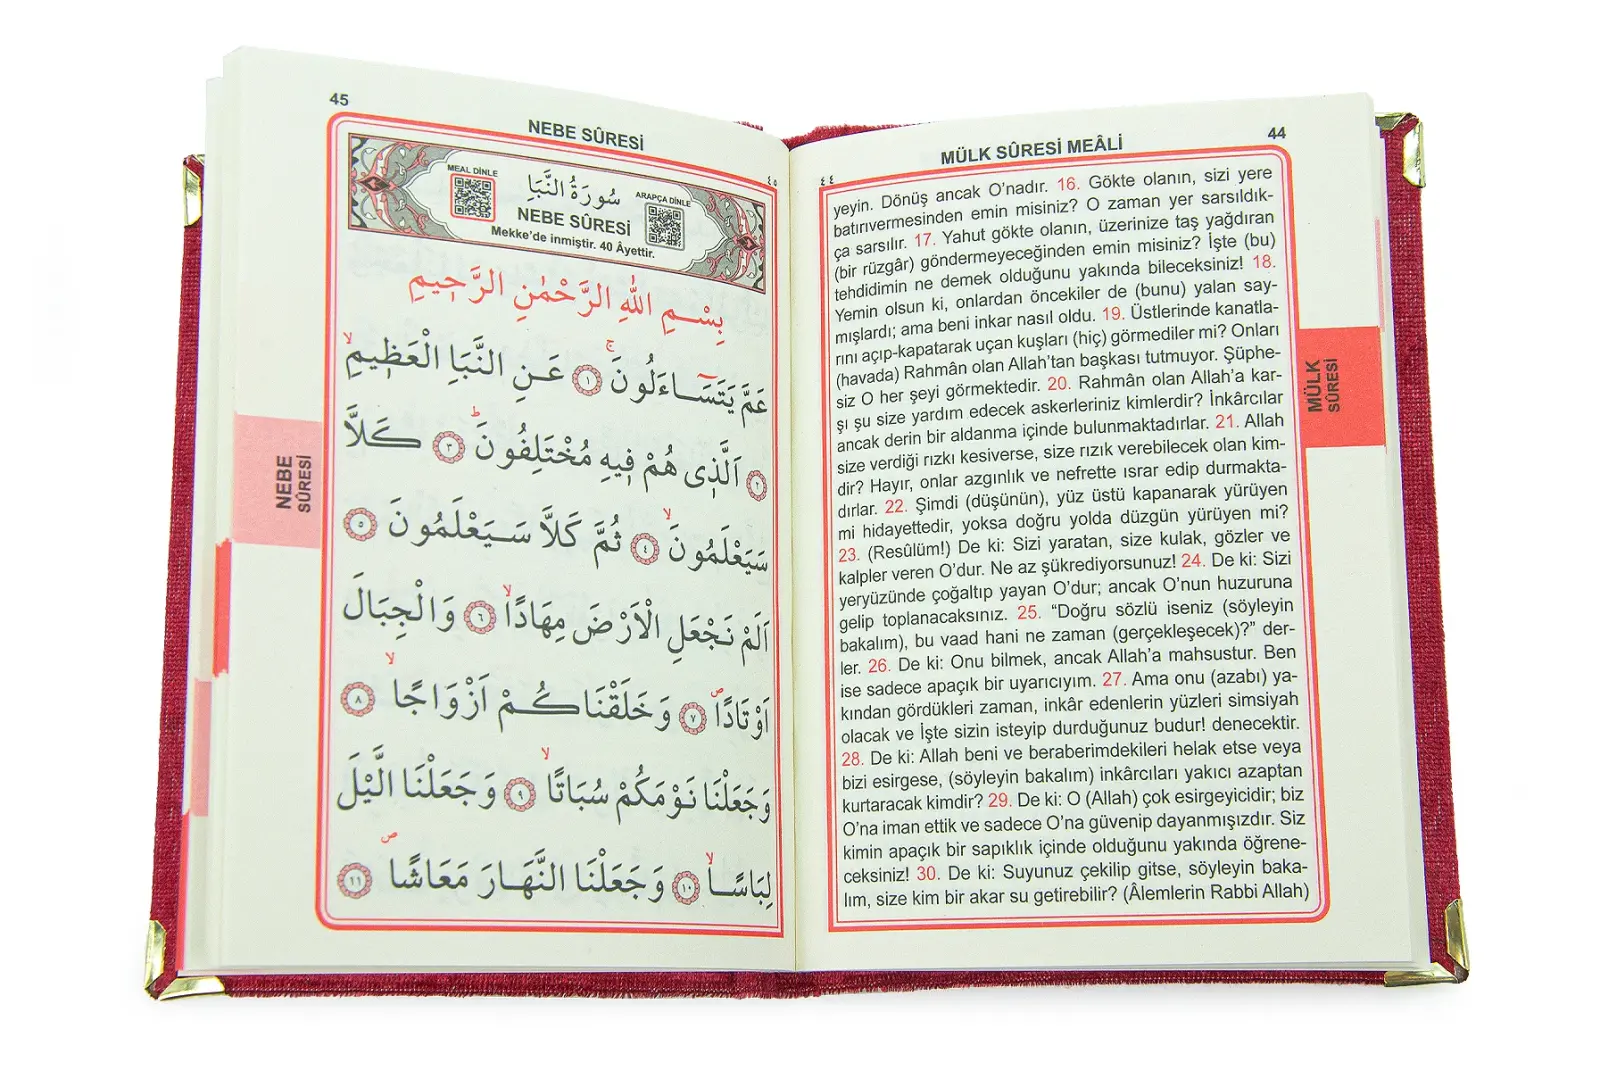 44
MÜLK SÛRESİ MEÂLİ
٤٤
yeyin. Dönüş ancak O’nadır. 16. Gökte olanın, sizi yere
batırıvermesinden emin misiniz? O zaman yer sarsıldık-
ça sarsılır. 17. Yahut gökte olanın, üzerinize taş yağdıran
(bir rüzgâr) göndermeyeceğinden emin misiniz? İşte (bu)
tehdidimin ne demek olduğunu yakında bileceksiniz! 18.
Yemin olsun ki, onlardan öncekiler de (bunu) yalan say-
mışlardı; ama beni inkar nasıl oldu. 19. Üstlerinde kanatla-
rını açıp-kapatarak uçan kuşları (hiç) görmediler mi? Onları
(havada) Rahmân olan Allah’tan başkası tutmuyor. Şüphe-
siz O her şeyi görmektedir. 20. Rahmân olan Allah’a kar-
şı şu size yardım edecek askerleriniz kimlerdir? İnkârcılar
ancak derin bir aldanma içinde bulunmaktadırlar. 21. Allah
size verdiği rızkı kesiverse, size rızık verebilecek olan kim-
dir? Hayır, onlar azgınlık ve nefrette ısrar edip durmakta-
dırlar. 22. Şimdi (düşünün), yüz üstü kapanarak yürüyen
mi hidayettedir, yoksa doğru yolda düzgün yürüyen mi?
23. (Resûlüm!) De ki: Sizi yaratan, size kulak, gözler ve
kalpler veren O’dur. Ne az şükrediyorsunuz! 24. De ki: Sizi
yeryüzünde çoğaltıp yayan O’dur; ancak O’nun huzuruna
gelip toplanacaksınız. 25. “Doğru sözlü iseniz (söyleyin
bakalım), bu vaad hani ne zaman (gerçekleşecek)?” der-
ler. 26. De ki: Onu bilmek, ancak Allah’a mahsustur. Ben
ise sadece apaçık bir uyarıcıyım. 27. Ama onu (azabı) ya-
kından gördükleri zaman, inkâr edenlerin yüzleri simsiyah
olacak ve İşte sizin isteyip durduğunuz budur! denecektir.
28. De ki: Allah beni ve beraberimdekileri helak etse veya
bizi esirgese, (söyleyin bakalım) inkârcıları yakıcı azaptan
kurtaracak kimdir? 29. De ki: O (Allah) çok esirgeyicidir; biz
O’na iman ettik ve sadece O’na güvenip dayanmışızdır. Siz
kimin apaçık bir sapıklık içinde olduğunu yakında öğrene-
ceksiniz! 30. De ki: Suyunuz çekilip gitse, söyleyin baka-
lım, size kim bir akar su getirebilir? (Âlemlerin Rabbi Allah)
MÜLK
SÛRESİ
45
NEBE SÛRESİ
٤٥
MEAL DİNLE
سُورَةُ النَّبَأِ
ARAPÇA DİNLE
NEBE SÛRESİ
Mekke’de inmiştir. 40 Âyettir.
بِسْمِ اللهِ الرَّحْمٰنِ الرَّحِيمِ
عَمَّ يَتَسَٓاءَلُونَۚ ﴿١﴾ عَنِ النَّبَأِ الْعَظِيمِۙ
﴿٢﴾ اَلَّذِى هُمْ فِيهِ مُخْتَلِفُونَۜ ﴿٣﴾ كَلَّا
سَيَعْلَمُونَۙ ﴿٤﴾ ثُمَّ كَلَّا سَيَعْلَمُونَ ﴿٥﴾
اَلَمْ نَجْعَلِ الْاَرْضَ مِهَادًاۙ ﴿٦﴾ وَالْجِبَالَ
اَوْتَادًاۖ ﴿٧﴾ وَخَلَقْنَاكُمْ اَزْوَاجًاۙ ﴿٨﴾
وَجَعَلْنَا نَوْمَكُمْ سُبَاتًاۙ ﴿٩﴾ وَجَعَلْنَا الَّيْلَ
لِبَاسًاۙ ﴿١٠﴾ وَجَعَلْنَا النَّهَارَ مَعَاشًاۖ ﴿١١﴾
NEBE
SÛRESİ